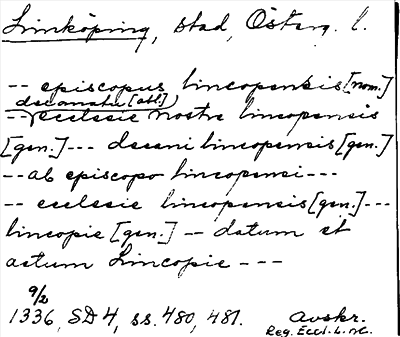 Linköping, stad, Österg. l.
-- episcopus lincopensis [nom.]
decanatu [abl.]
-- ecclesie nostre lincopensis
[gen.] --- decani lincopensis [gen.]
-- ab episcopo lincopensi ---
-- ecclesie lincopensis [gen.] ---
lincopie [gen.] -- datum et
actum Lincopie ---
9/2
1336, SD 4, ss. 480, 481. Avskr.
Reg. Eccl. L. nC.